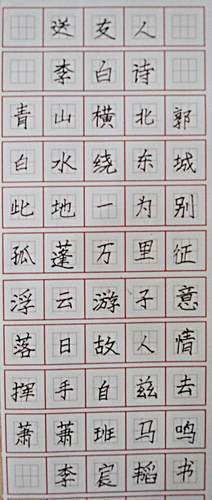 送友人
李白诗
青山横北郭
白水绕东城
此地一为别
孤蓬万里征
浮云游子意
落日故人情
挥手自兹去
萧萧班马鸣
李宸韬书